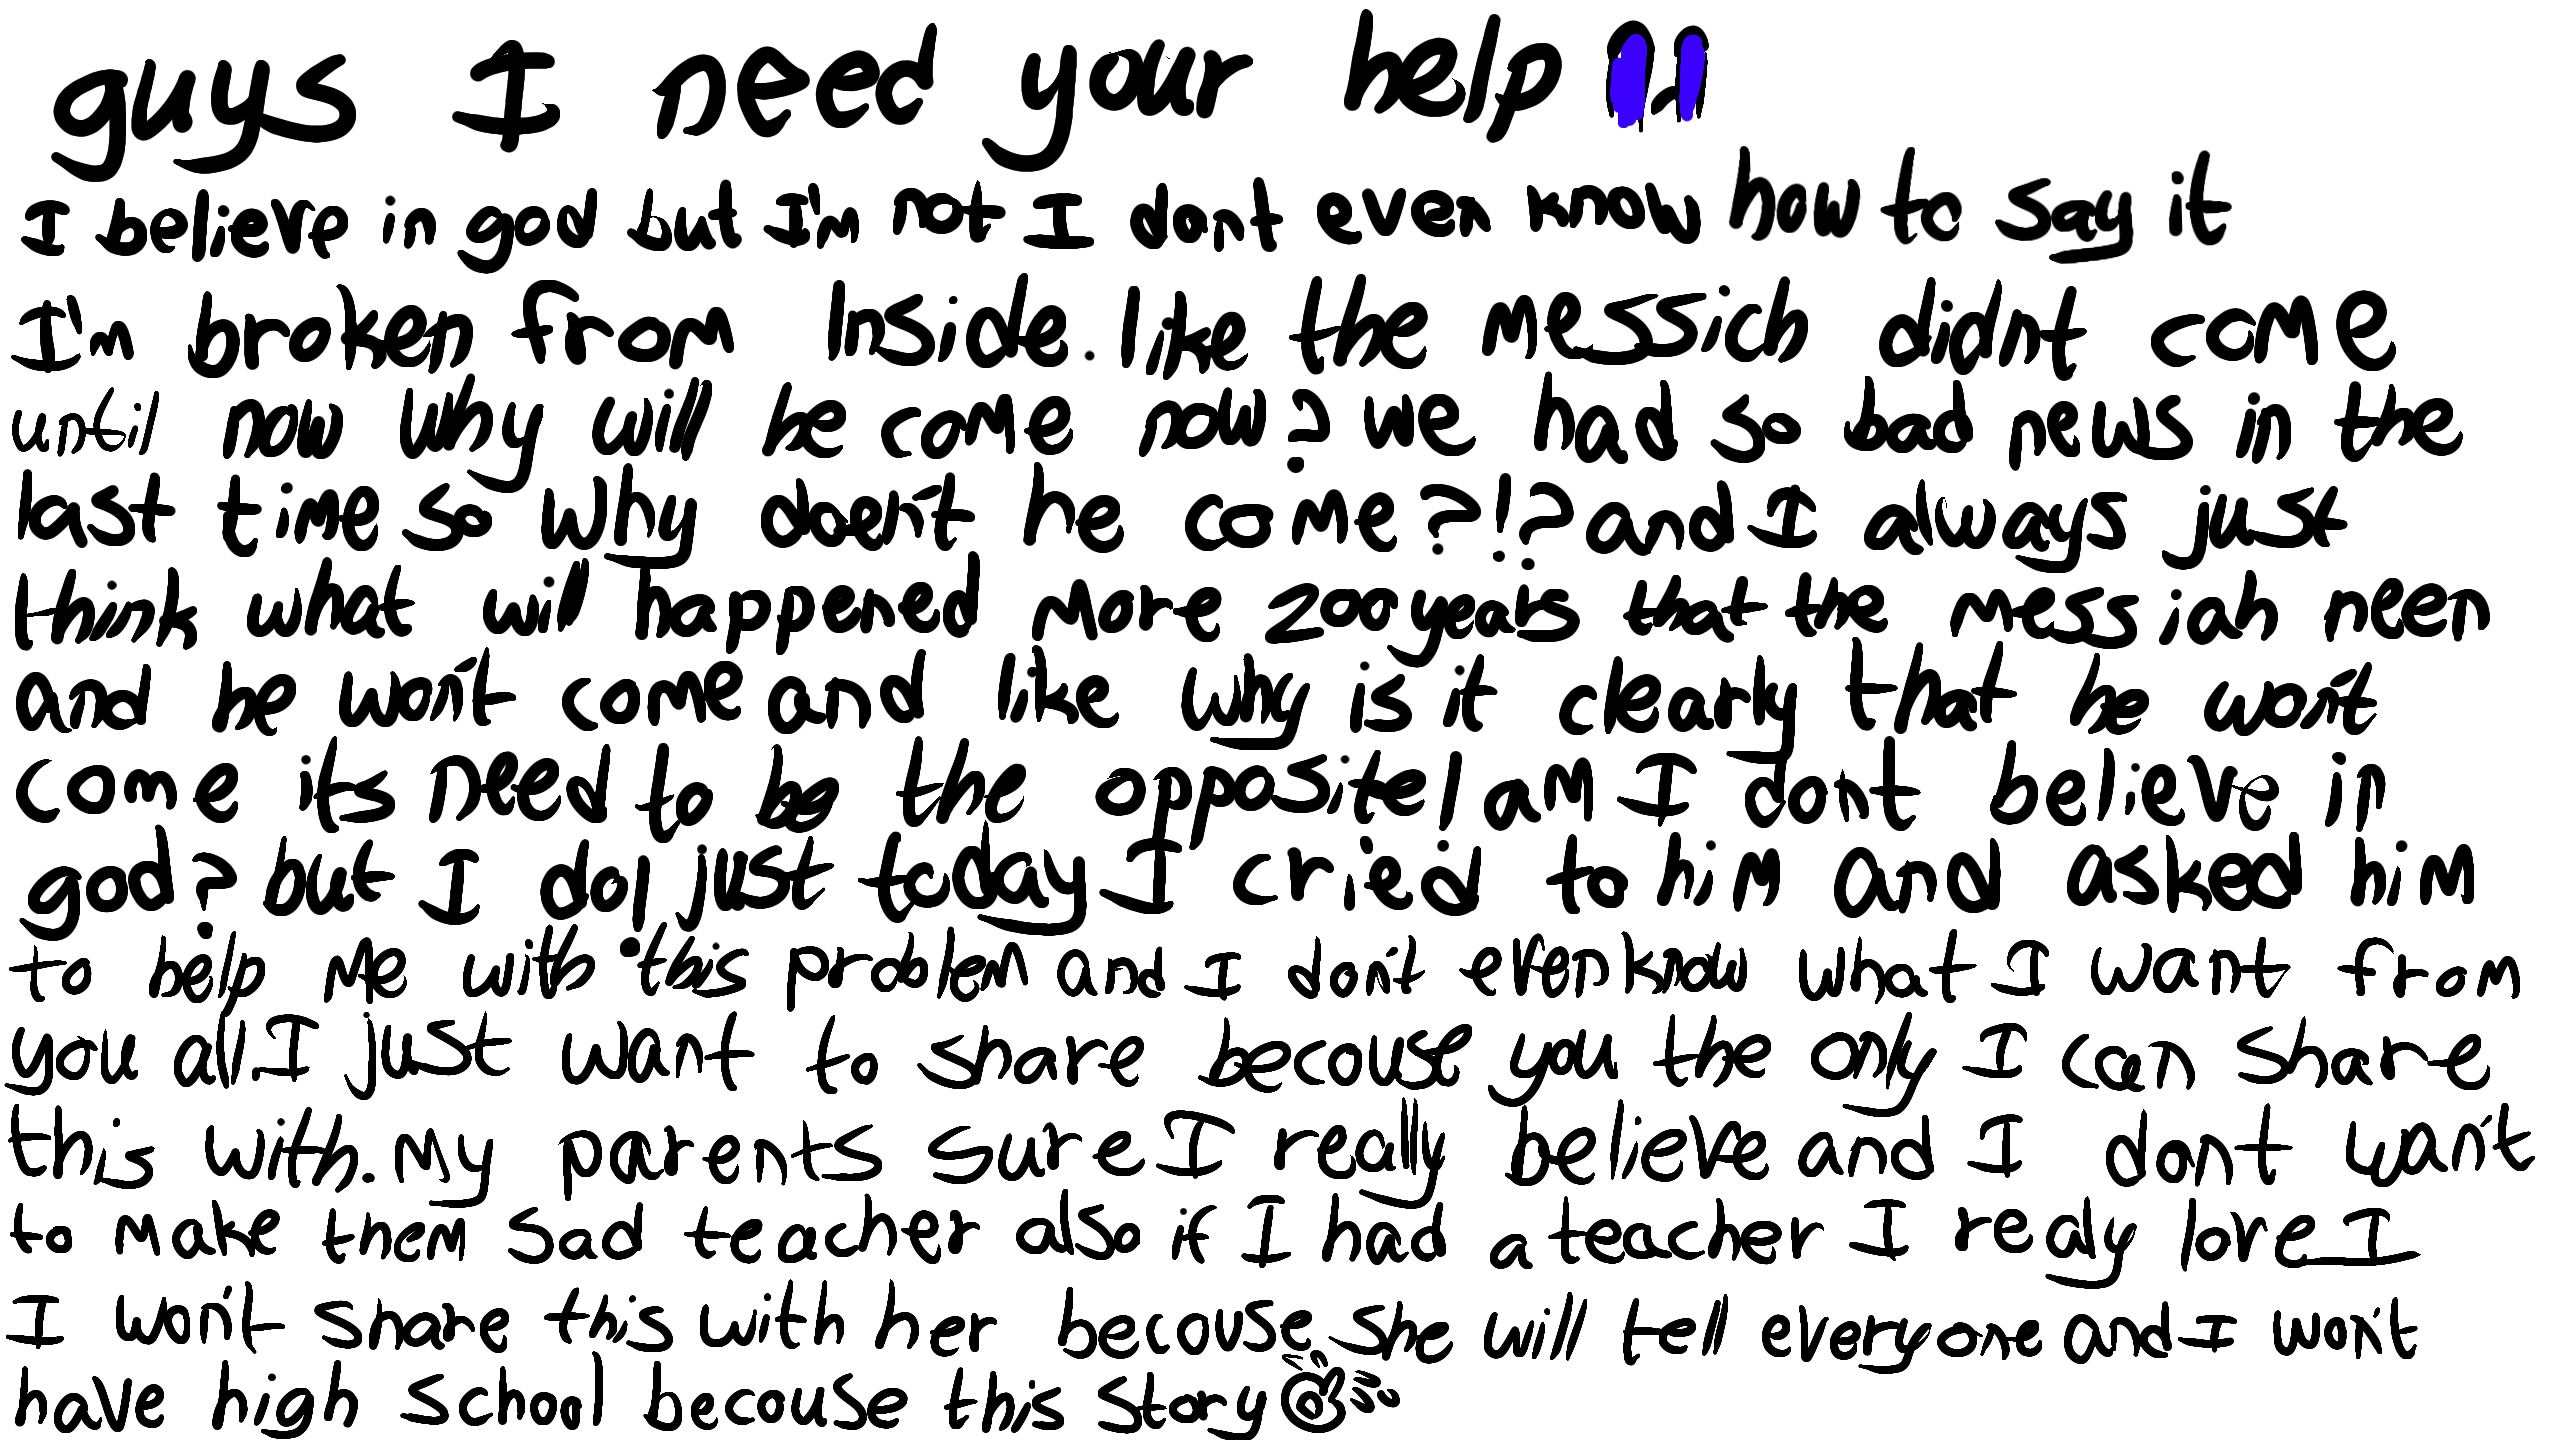 guys I need your help !!
I believe in god but I'm not I dont even know how to say it
I'm broken from Inside. like the messich didnt come
until now why will he come now? we had so bad news in the
last time so why doen't he come?!? and I always just
think what will happened more 200 years that the messiah neen
and he won't come and like why is it clearly that he won't
come its need to be the opposite! am I dont believe in
god? but I do! just today I cried to him and asked him
to help me with this problem and I don't even know what I want from
you all. I just want to share becouse you the only I can share
this with. My parents sure I really believe and I dont wan't
to make them sad teacher also if I had a teacher I realy love I
I won't share this with her becouse she will tell everyone and I won't
have high school becouse this story